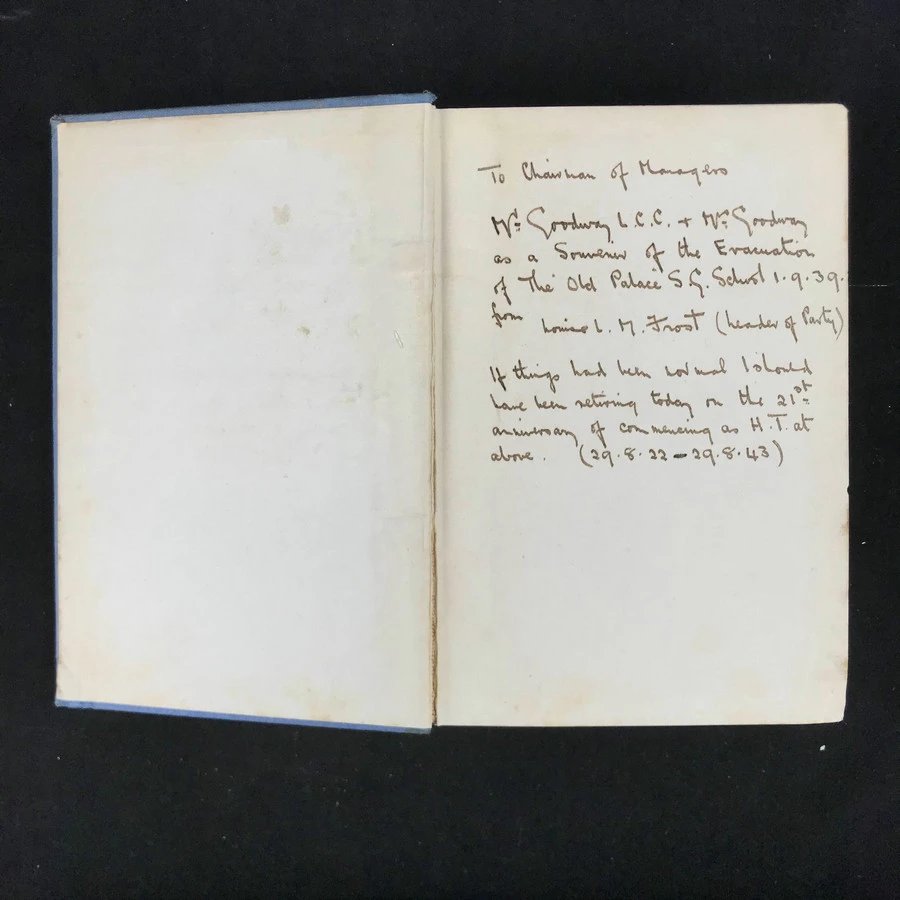 To Chairman of Managers
Mr. Goodway L.C.C. + Mrs. Goodway
as a Souvenir of the Evacuation
of The Old Palace S.G. School 1.9.39.
from Louise L. M. Frost (Leader of Party)
If things had been normal I should
have been retiring today on the 21st
anniversary of commencing as H.T. at
above. (29.8.22 - 29.8.43)